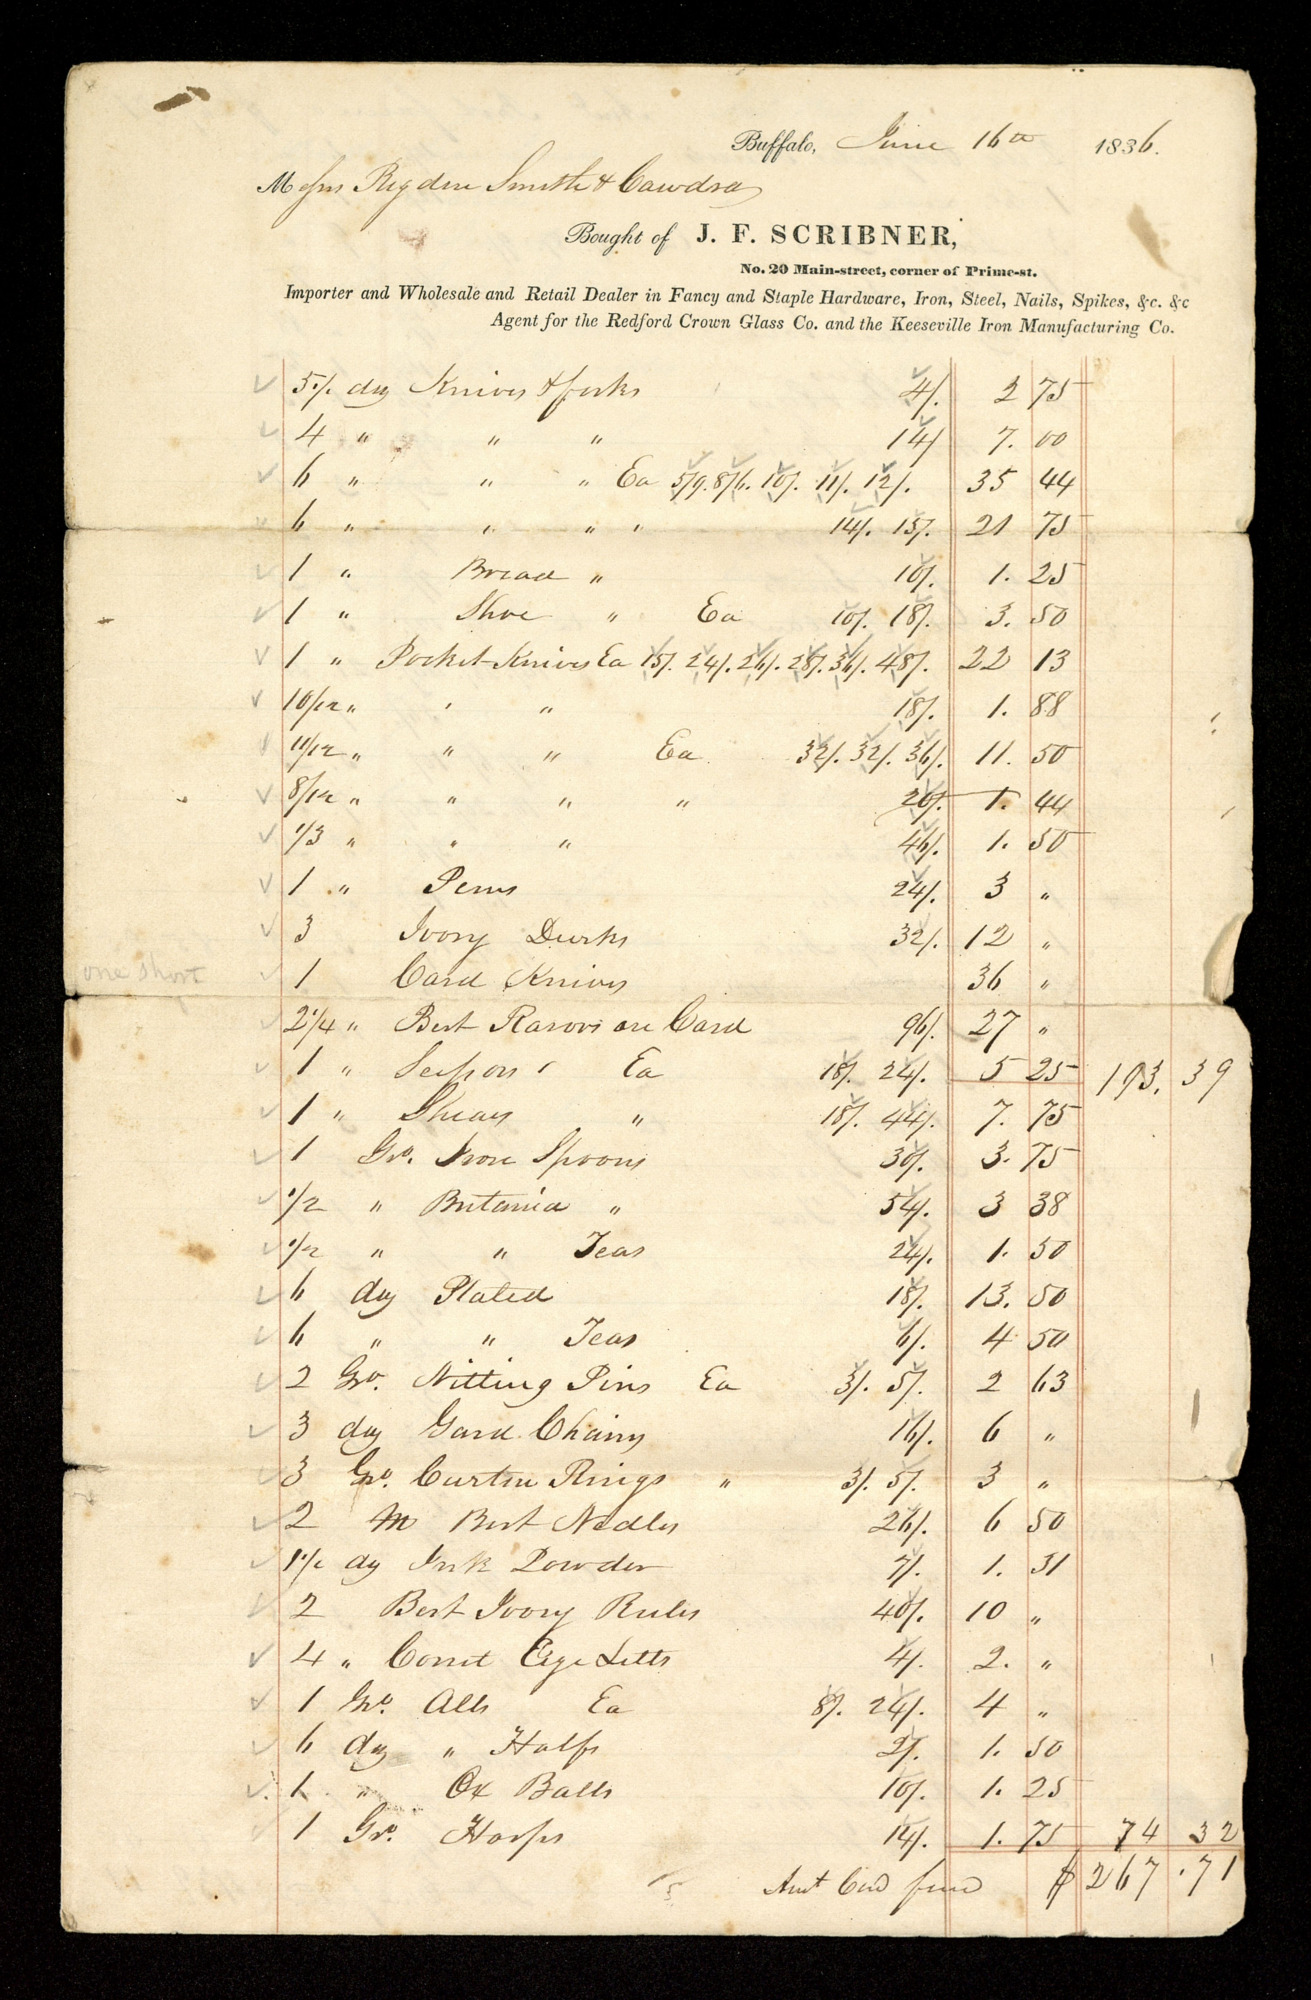 Buffalo, June 16th 1836.
Messrs Rigdon Smith & Cawdra
Bought of J. F. SCRIBNER,
No. 20 Main-street, corner of Prime-st.
Importer and Wholesale and Retail Dealer in Fancy and Staple Hardware, Iron, Steel, Nails, Spikes, &c. &c
Agent for the Redford Crown Glass Co. and the Keeseville Iron Manufacturing Co.
5 1/2 doz Knives & forks 4/. 2 75
4 " " " 14/ 7. 00
6 " " " Ea 5/9. 8/6. 10/. 11/. 12/. 35 44
6 " " " " 14/. 15/. 21 75
1 " Bread " 10/. 1. 25
1 " Shoe " Ea 10/. 18/. 3. 50
1 " Pocket Knives Ea 15/. 24/. 26/. 28/. 36/. 48/. 22 13
10/12 " " " 18/. 1. 88
11/12 " " " Ea 32/. 32/. 36/. 11. 50
8/12 " " " " 26/. 1. 44
1/3 " " " 46/. 1. 50
1 " Pens 24/. 3 "
3 Ivory Durks 32/. 12 "
one short
1 Card Knives 36 "
2 1/4 " Best Rasors on Card 96/. 27 "
1 " Scissors Ea 18/. 24/. 5 25 193. 39
1 " Shears " 18/. 44/. 7. 75
1 Gro. Iron Spoons 30/. 3. 75
1/2 " Britania " 54/. 3 38
1/2 " " Teas 24/. 1. 50
6 doz Plated 18/. 13. 50
6 " " Teas 6/. 4 50
2 Gro. Nitting Pins Ea 3/. 5/. 2 63
3 doz Gard Chains 16/. 6 "
3 Gro. Curtin Rings " 3/. 5/. 3 "
2 M Best Nedles 26/. 6 50
1 1/2 doz Ink Powder 7/. 1. 31
2 Best Ivory Rules 40/. 10 "
4 " Corset Eye Letts 4/. 2. "
1 Gro. Alls Ea 8/. 24/. 4 "
6 doz " Halfs 2/. 1. 50
1 " Ox Balls 10/. 1. 25
1 Gro. Harps 14/. 1. 75 74 32
Amt Card $ 267.71